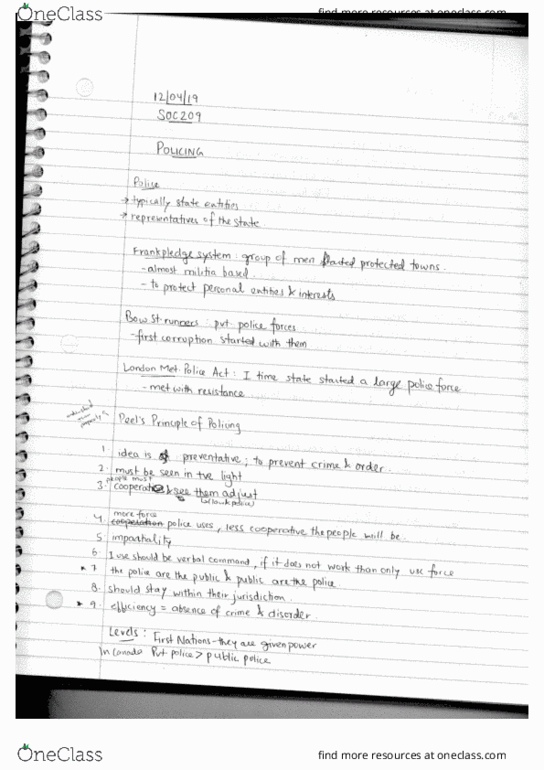 OneClass
find more resources at oneclass.com
12/04/19
SOC209
POLICING
Police
→ typically state entities
→ representatives of the state
Frankpledge system: group of men started protected towns.
- almost militia based.
- to protect personal entities & interests
Bow St. runners: pvt police forces
- first corruption started with them
London Met. Police Act: I time state started a large police force
- met with resistance
understand
properly
Peel's Principle of Policing
1. idea is preventative; to prevent crime & order.
2. must be seen in +ve light
people must
3. cooperate & see them adjust
4. more force
cooperation police uses, less cooperative the people will be.
5. impartiality
6. I use should be verbal command, if it does not work than only use force
7. the police are the public & public are the police
8. should stay within their jurisdiction.
9. efficiency = absence of crime & disorder.
Levels: First Nations - they are given power
In Canada Pvt police > public police
OneClass
find more resources at oneclass.com